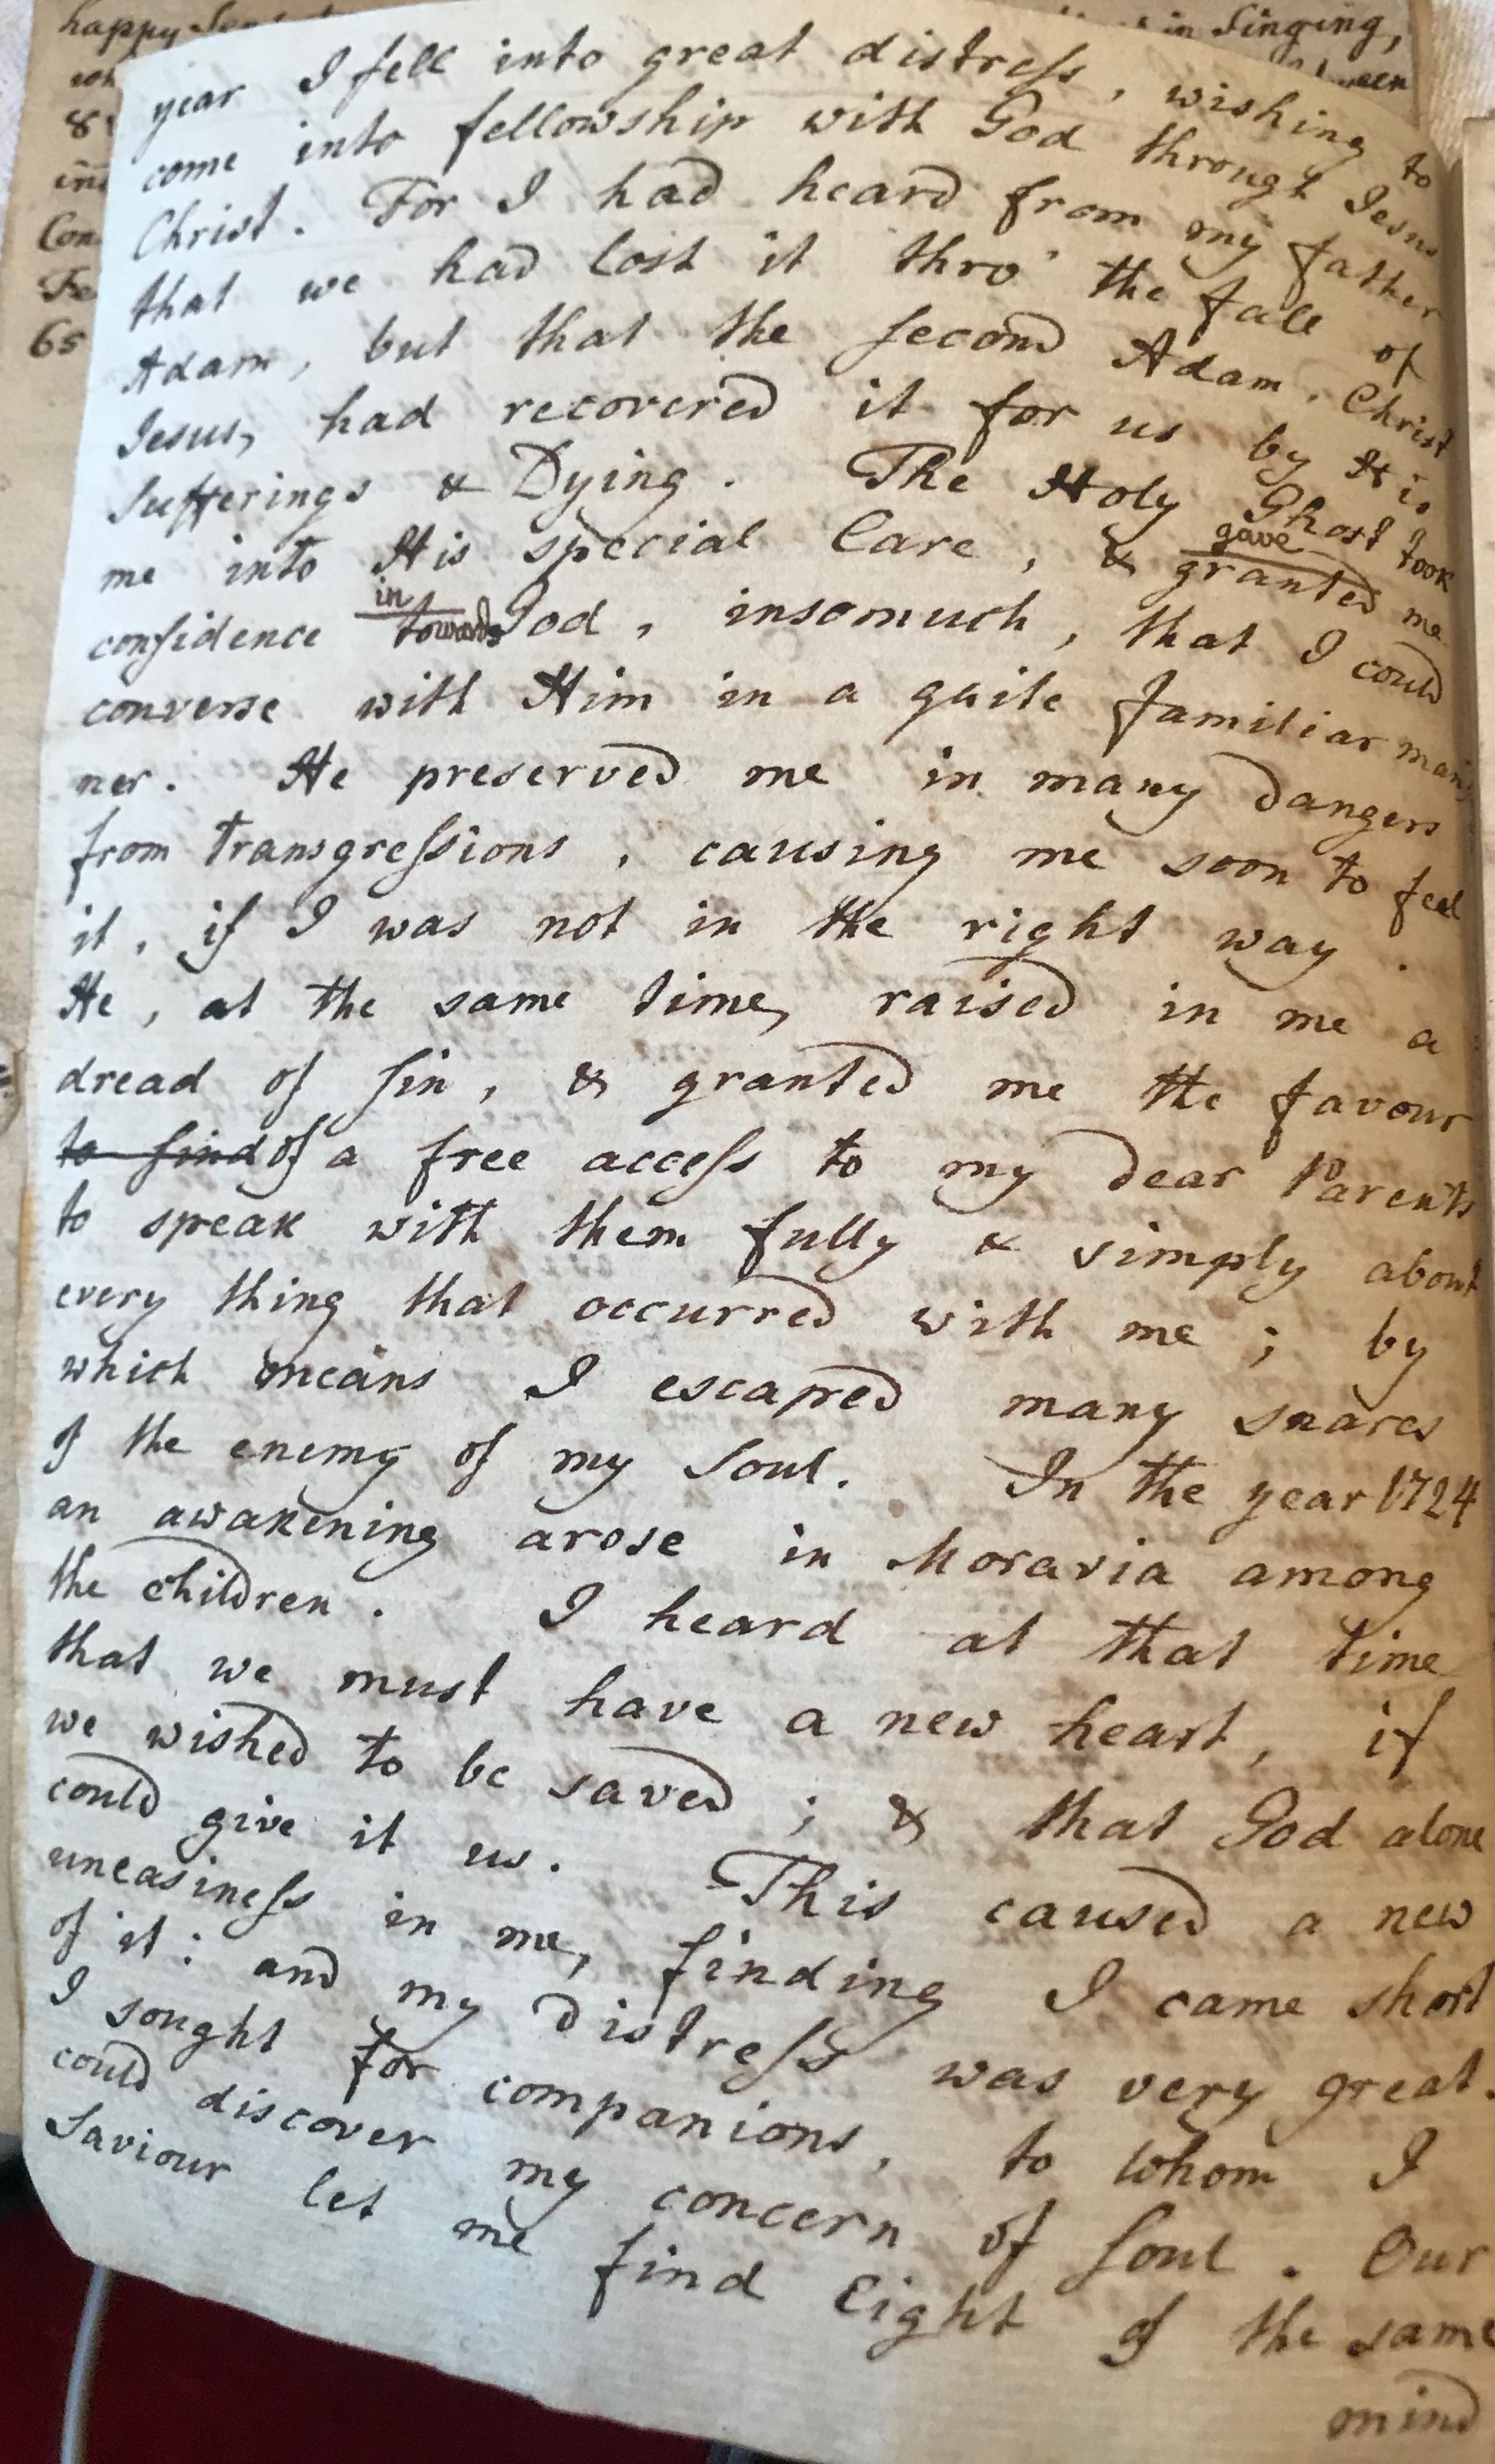 happy
in Singing,
year I fell into great distress, wishing to
come into fellowship with God through Jesus
Christ. For I had heard from my father
that we had lost it thro' the fall of
Adam, but that the second Adam, Christ
Jesus, had recovered it for us by His
Sufferings & Dying. The Holy Ghost took
gave
me into His special Care, & granted me
in
confidence towards God, insomuch, that I could
converse with Him in a quite familiar man
ner. He preserved me in many dangers
from transgressions, causing me soon to feel
it, if I was not in the right way.
He, at the same time, raised in me a
dread of sin, & granted me the favour
to find of a free access to my dear Parents
to speak with them fully & simply about
every thing that occurred with me; by
which means I escaped many snares
of the enemy of my Soul. In the year 1724
an awakening arose in Moravia among
the children. I heard at that time
that we must have a new heart, if
we wished to be saved; & that God alone
could give it us. This caused a new
uneasiness in me, finding I came short
of it: and my distress was very great.
I sought for companions, to whom I
could discover my concern of soul. Our
Saviour let me find Eight of the same
mind